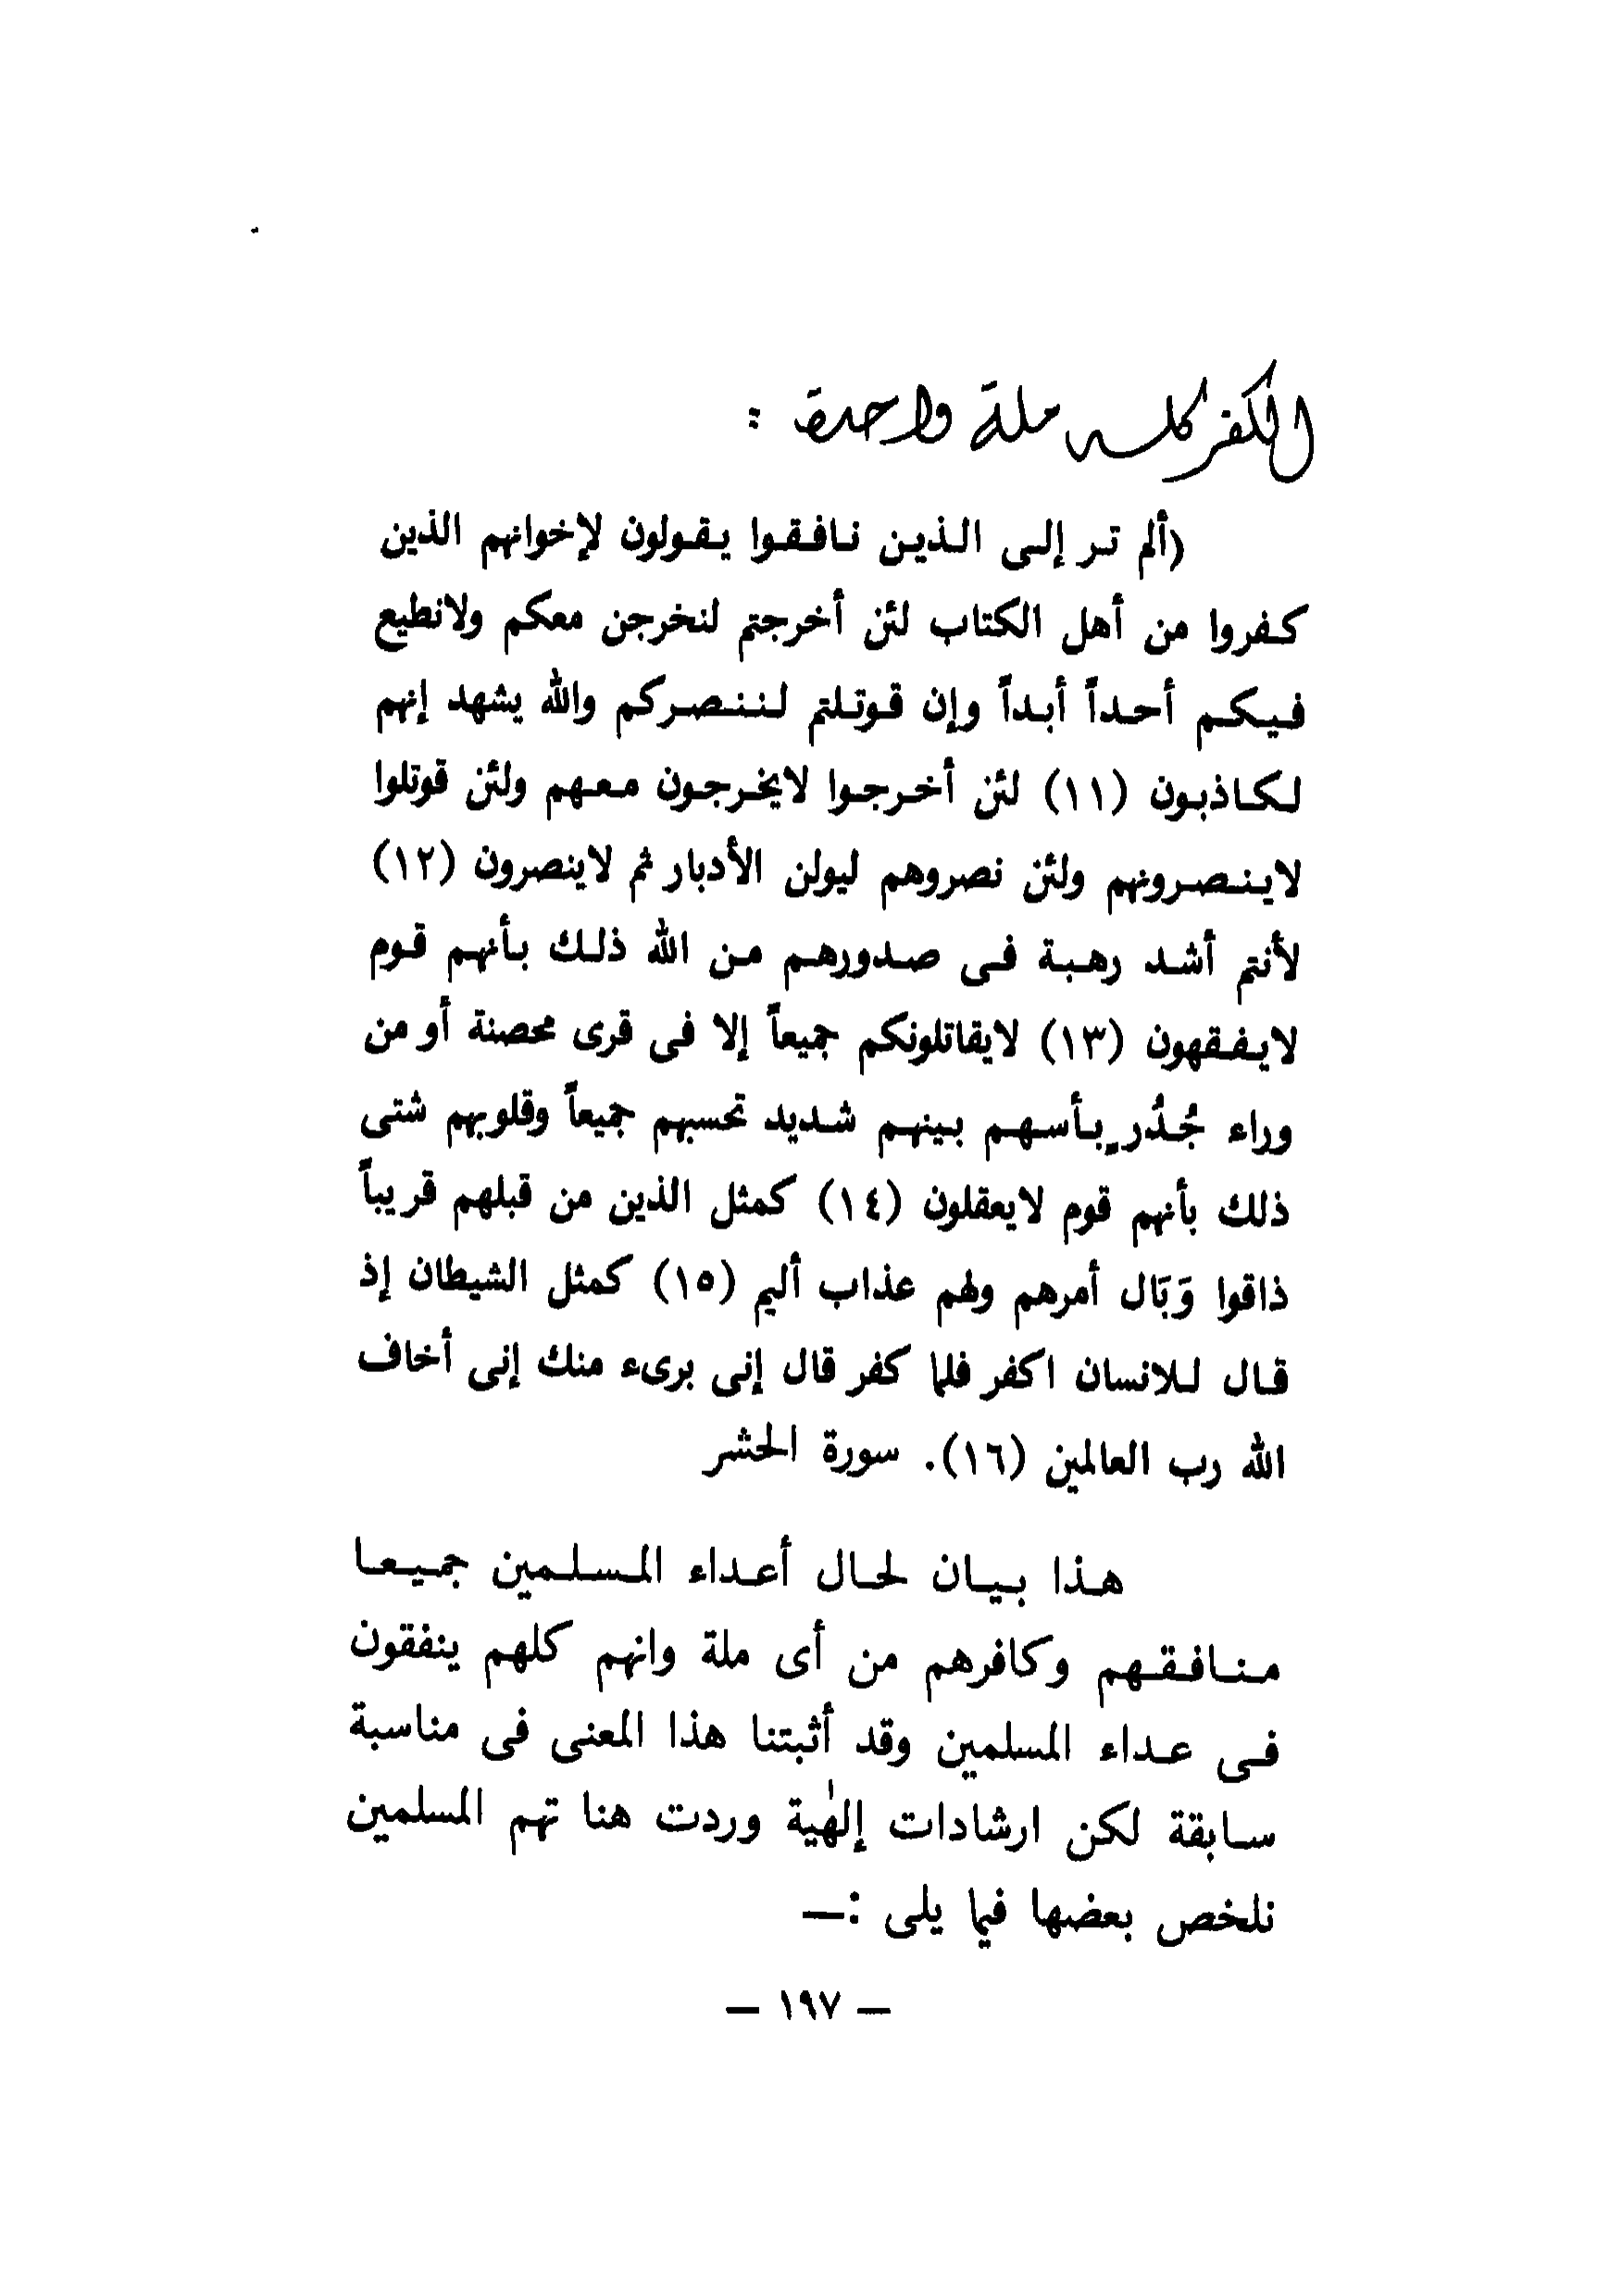 الكفر كله ملة واحدة :
(ألم تر إلى الذين نافقوا يقولون لإخوانهم الذين
كفروا من أهل الكتاب لئن أخرجتم لنخرجن معكم ولانطيع
فيكم أحداً أبداً وإن قوتلتم لننصركم والله يشهد إنهم
لكاذبون (١١) لئن أخرجوا لايخرجون معهم ولئن قوتلوا
لاينصرونهم ولئن نصروهم ليولن الأدبار ثم لاينصرون (١٢)
لأنتم أشد رهبة فى صدورهم من الله ذلك بأنهم قوم
لايفقهون (١٣) لايقاتلونكم جميعاً إلا فى قرى محصنة أو من
وراء جُدُرٍ بأسهم بينهم شديد تحسبهم جميعاً وقلوبهم شتى
ذلك بأنهم قوم لايعقلون (١٤) كمثل الذين من قبلهم قريباً
ذاقوا وَبَال أمرهم ولهم عذاب أليم (١٥) كمثل الشيطان إذ
قال للانسان اكفر فلما كفر قال إنى برىء منك إنى أخاف
الله رب العالمين (١٦). سورة الحشر
هذا بيان لحال أعداء المسلمين جميعا
منافقهم وكافرهم من أى ملة وانهم كلهم ينفقون
فى عداء المسلمين وقد أثبتنا هذا المعنى فى مناسبة
سابقة لكن ارشادات إلهٰية وردت هنا تهم المسلمين
نلخص بعضها فيما يلى :—
— ١٩٧ —